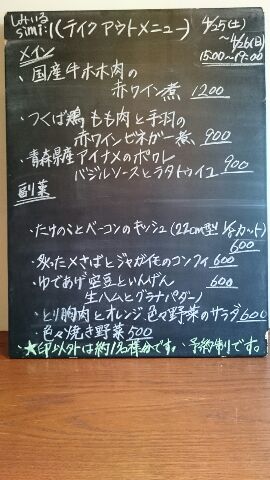 しみいる
simi:l (テイクアウトメニュー) 4/25(土)
～4/26(日)
15:00～19:00
メイン
・国産牛ホホ肉の
赤ワイン煮 1200
・つくば鶏もも肉と手羽の
赤ワインビネガー煮 900
・青森県産アイナメのポワレ
バジルソースとラタトゥイユ 900
副菜
・たけのことベーコンのキッシュ(22cm型 1/8カット)
600
・炙った〆さばとジャガ芋のコンフィ 600
・ゆであげ空豆といんげん 600
生ハムとグラナパダーノ
・とり胸肉とオレンジ、色々野菜のサラダ 600
・色々焼き野菜 500
・★印以外は約1名様分です。・予約制です。